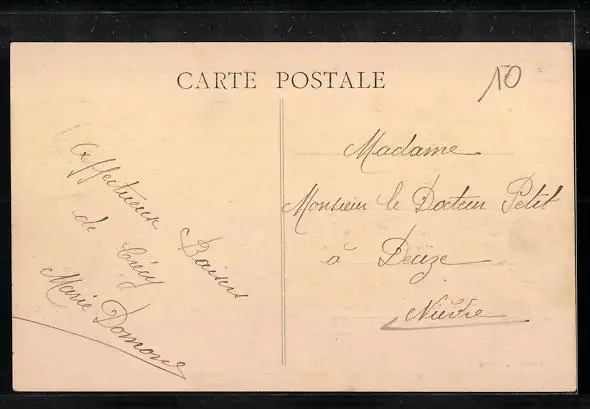 CARTE POSTALE
10
Affectueux Baisers
de Crécy
Marie Domone
Madame
Monsieur le Docteur Petit
à Decize
Nièvre